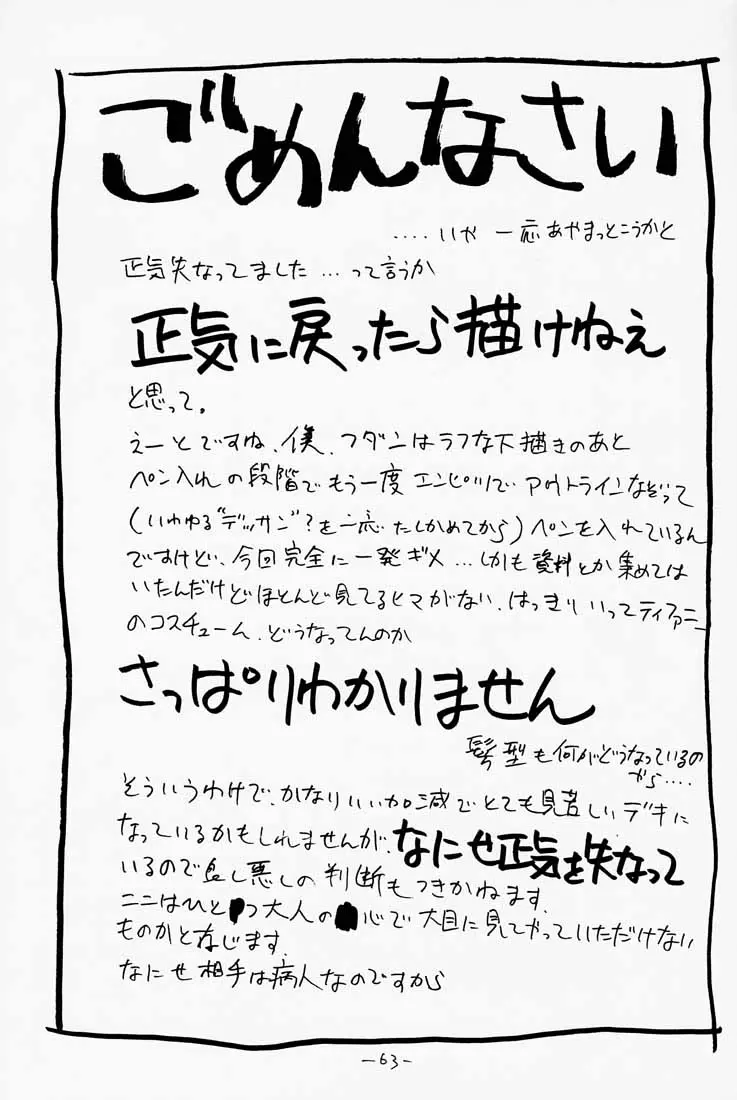 ごめんなさい
‥‥いや 一応あやまっとこうかと
正気失なってました…って言うか
正気に戻ったら描けねぇ
と思って。
えーとですね、僕、フダンはラフな下描きのあと
ペン入れの段階でもう一度エンピツでアウトラインなぞって
(いわゆる“デッサン”?を一応たしかめてから)ペンを入れているん
ですけど、今回完全に一発ギメ…しかも資料とか集めては
いたんだけどほとんど見てるヒマがない、はっきりいってティファニー
のコスチューム、どうなってんのか
さっぱりわかりません
髪型も何がどうなっているの
やら‥‥
そういうわけで、かなりいい加減でとても見苦しいデキに
なっているかもしれませんが、なにせ正気を失なって
いるので良し悪しの判断もつきかねます、
ここはひとつ大人の心で大目に見てやっていただけない
ものかと存じます、
なにせ相手は病人なのですから
—63—